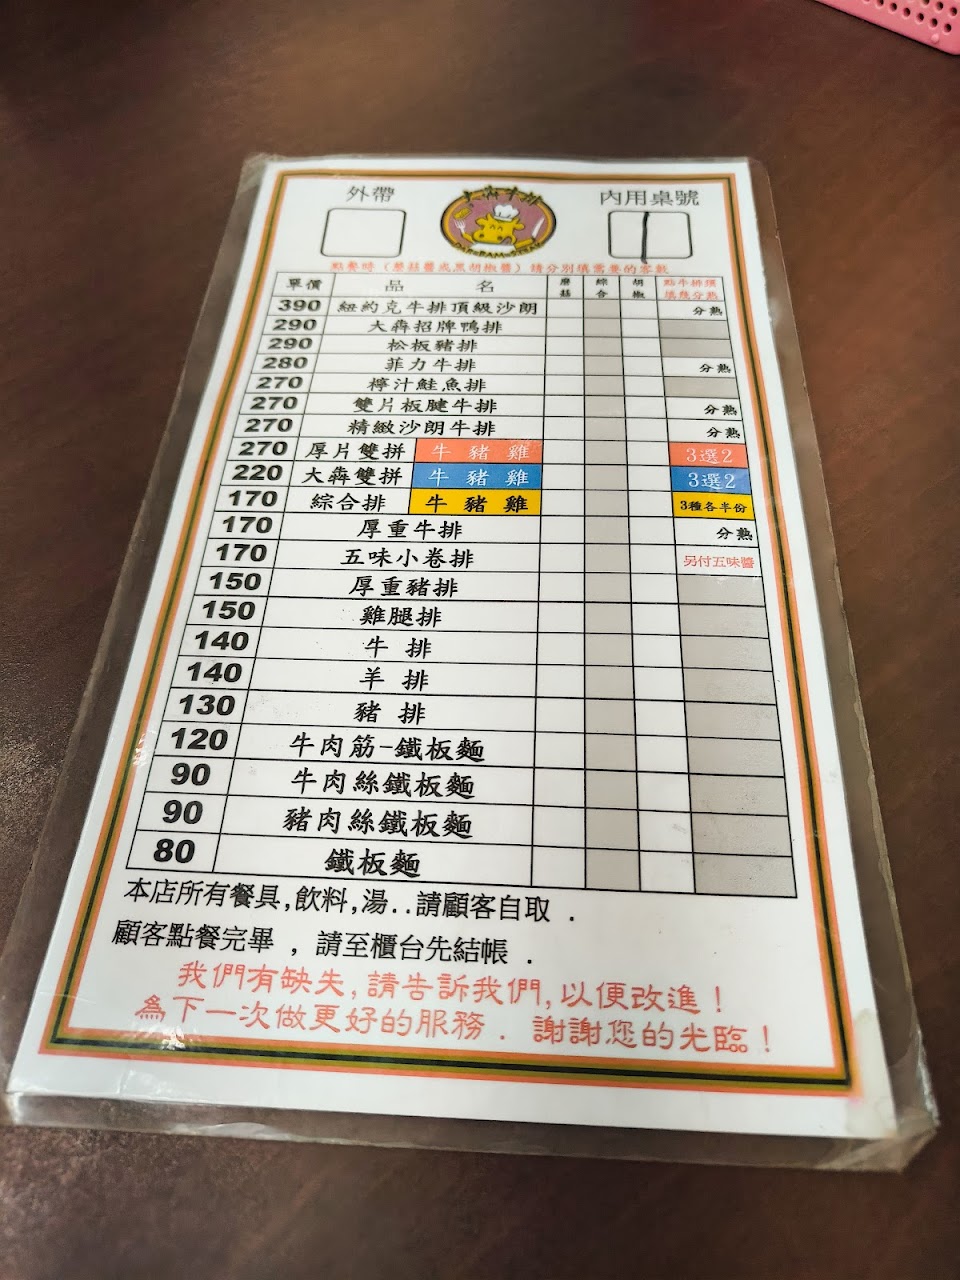 外帶
內用桌號
點餐時（蘑菇醬或黑胡椒醬）請分別填需要的客數
單價 品 名 蘑菇 綜合 胡椒 點牛排請填幾分熟
390 紐約克牛排頂級沙朗 分熟
290 大犇招牌鴨排
290 松板豬排
280 菲力牛排 分熟
270 檸汁鮭魚排
270 雙片板腱牛排 分熟
270 精緻沙朗牛排 分熟
270 厚片雙拼 牛 豬 雞 3選2
220 大犇雙拼 牛 豬 雞 3選2
170 綜合排 牛 豬 雞 3種各半份
170 厚重牛排 分熟
170 五味小卷排 另付五味醬
150 厚重豬排
150 雞腿排
140 牛 排
140 羊 排
130 豬 排
120 牛肉筋-鐵板麵
90 牛肉絲鐵板麵
90 豬肉絲鐵板麵
80 鐵板麵
本店所有餐具,飲料,湯..請顧客自取 .
顧客點餐完畢 , 請至櫃台先結帳 .
我們有缺失,請告訴我們,以便改進！
為下一次做更好的服務 . 謝謝您的光臨！